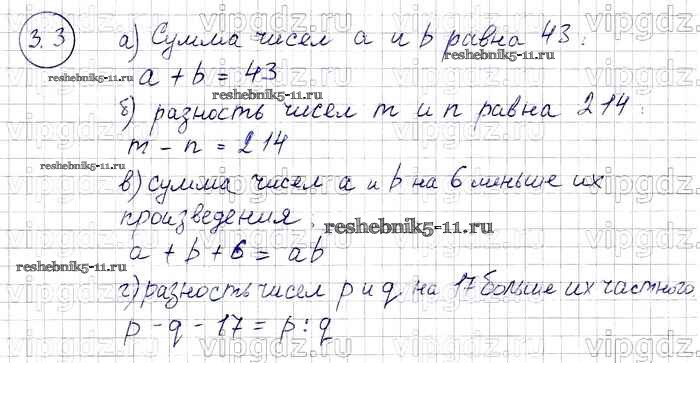 3.3
а) Сумма чисел a и b равна 43:
reshebnik5-11.ru
reshebnik5-11.ru
a + b = 43
reshebnik5-11.ru
б) разность чисел m и n равна 214:
m - n = 214
reshebnik5-11.ru
в) сумма чисел a и b на 6 меньше их
произведения.
reshebnik5-11.ru
a + b + 6 = ab
reshebnik5-11.ru
г) разность чисел p и q на 17 больше их частного
p - q - 17 = p : q
vipgdz.ru